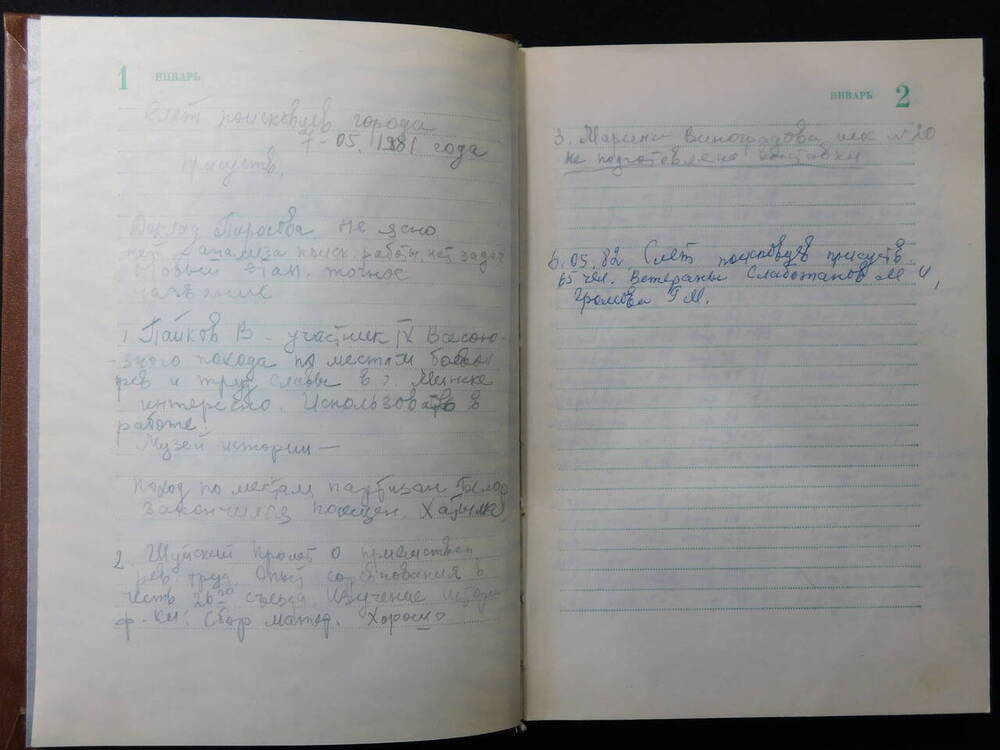 1 ЯНВАРЬ
Слет поисковцев города
7-05. 1981 года
присутств.
Доклад Не ясно
нет анализа поиск. работы, нет задач
Новый этап. точное
название
1 Пайков В - участник IV Всесою-
зного похода по местам боевой
рев и труд славы в г. Минске
интересно. Использовать в
работе.
Музей истории —
Поход по местам партизан Бело
закончился посещен. Хатыни
2. Шуйский Пролет о преемствен
рев. труд. Опыт соревнования в
честь 26го съезда. Изучение истор
ф-ки. Сбор матер. Хорошо
ЯНВАРЬ 2
3. Марина Виноградова, шк №20
не подготовлена выставки
6.05.82 Слет поисковцев присутств
65 чел. Ветераны Слаботанов М И,
Громова Г М.